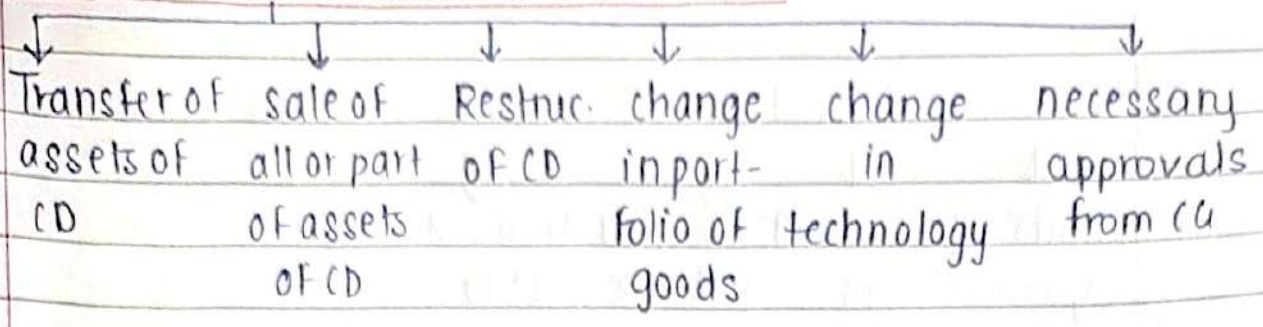 Transfer of
assets of
CD
sale of
all or part
of assets
of CD
Restruc.
of CD
change
in port-
folio of
goods
change
in
technology
necessary
approvals
from CG